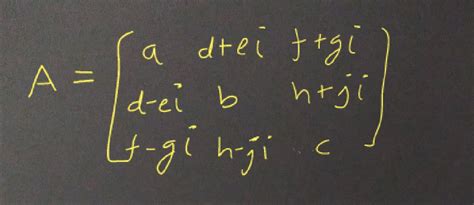 a d+ei f+gi
A = d-ei b h+ji
f-gi h-ji c